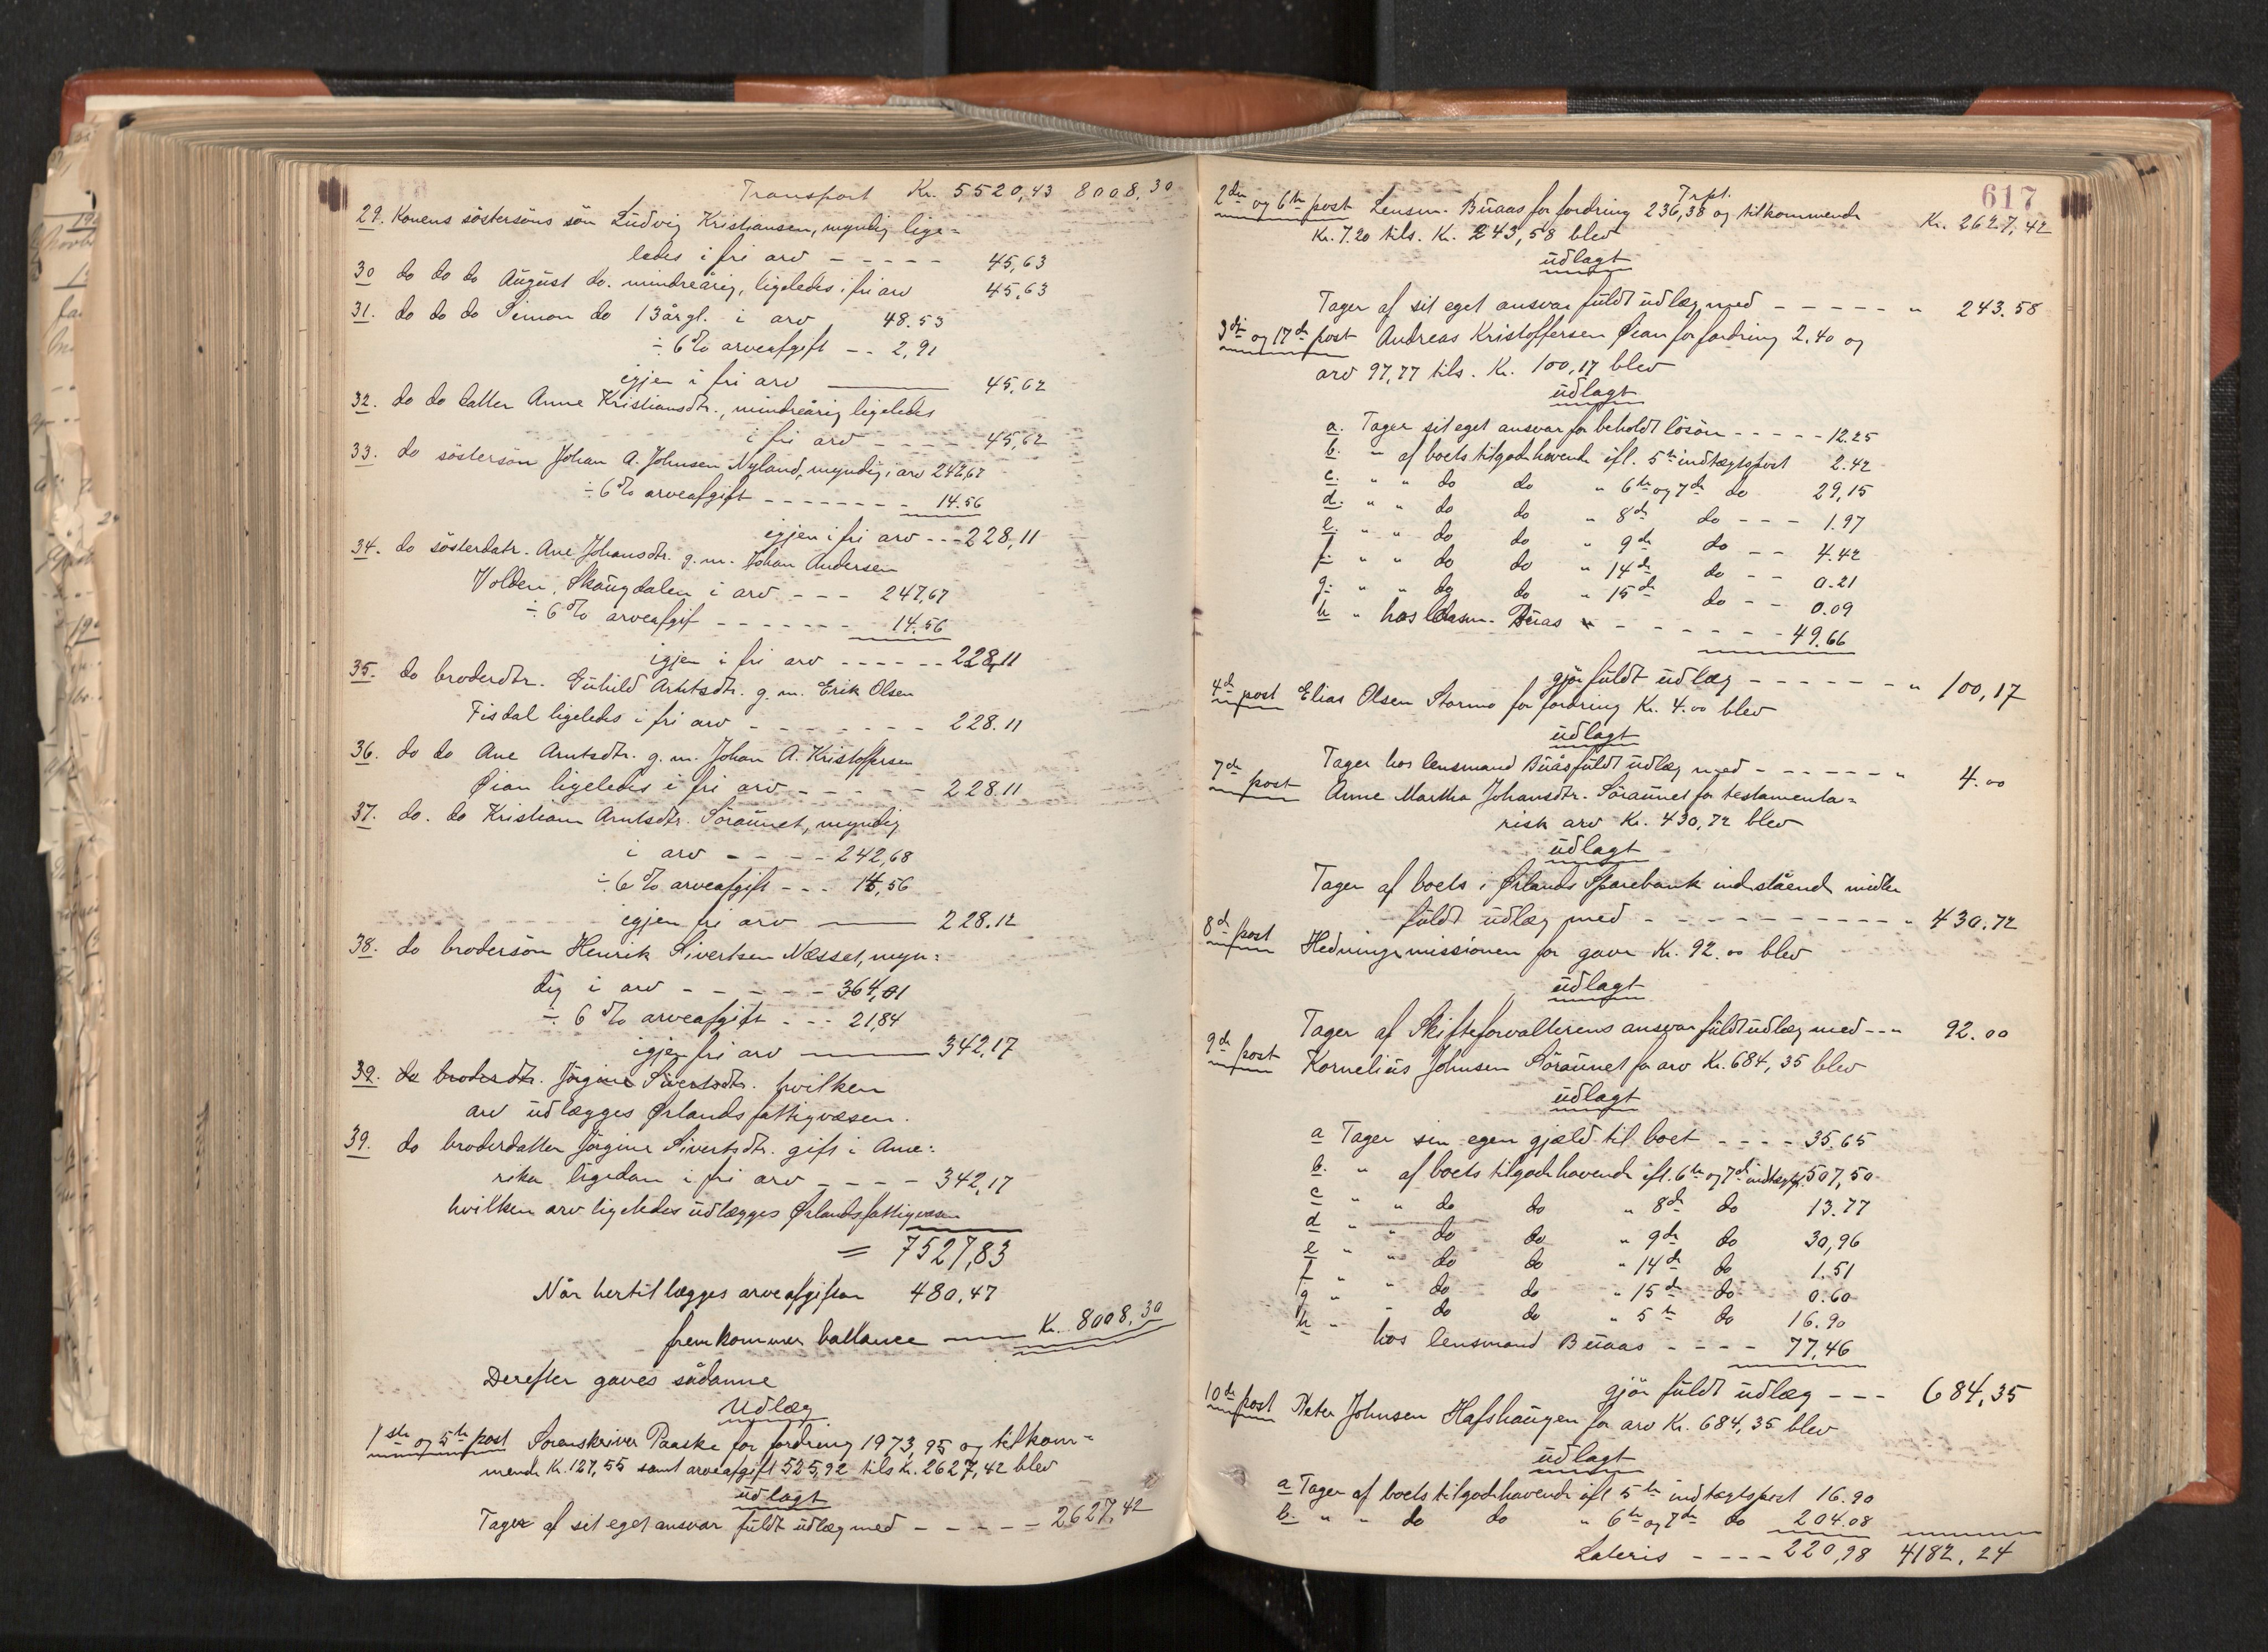 Transport Kr. 5520,43 8008,30
29. Konens söstersöns sön Ludvig Kristiansen, myndig lige=
ledes i fri arv - - - - - 45,63
30 do do do August do. mindreårig, ligeledes i fri arv 45,63
31. do do do Simon do 13 årgl. i arv 48.53
÷ 6% arveafgift - - 2,91
igjen i fri arv 45,62
32. do do datter Anne Kristiansdtr., mindreårig ligeledes
i fri arv - - - - 45,62
33. do söstersön Johan A. Johnsen Nyland, myndig, arv 242,67
÷ 6% arveafgift - - - - - - - 14.56
igjen i fri arv - - - 228,11
34. do sösterdatr. Ane Johansdtr. g. m. Johan Andersen
Volden, Skaugdalen i arv - - - 242,67
÷ 6% arveafgif - - - - - - - 14.56
igjen i fri arv - - - - - - 228,11
35. do broderdtr. Guhild Arntsdtr. g. m. Erik Olsen
Fisdal ligeledes i fri arv - - - - - - - 228.11
36. do do Ane Arntsdtr. g. m. Johan A. Kristoffersen
Øian ligeledes i fri arv - - - - - 228.11
37. do. do Kristiane Arntsdtr. Söraunet, myndig
i arv - - - - 242,68
÷ 6% arveafgift - - - 14,56
igjen fri arv 228.12
38. do brodersön Henrik Sivertsen Næsset, myn=
dig i arv - - - - - 364,01
÷ 6% arveafgift - - - 21,84
igjen fri arv 342,17
39. do broderdtr. Jörgine Sivertsdtr. hvilken
arv udlægges Ørlands fattigvæsen.
39. do broderdatter Jörgine Sivertsdtr. gift i Ame=
rika ligedan i fri arv - - - - 342,17
hvilken arv ligeledes udlægges Ørlands fattigvæsen
= 7527,83
Når hertil lægges arveafgiften 480,47
fremkommer ballance Kr. 8008,30
Derefter gaves sådanne
Udlæg
1ste og 5te post Sorenskriver Paaske for fordring 1973,95 og tilkom=
mende Kr. 127,55 samt arveafgift 525,92 tils Kr. 2627,42 blev
udlagt
Tager af sit eget ansvar fuldt udlæg med - - - - - 2627,42
617
Trpt. Kr. 2627,42
2den og 6te post Lensm. Buaas for fordring 236,38 og tilkommende
Kr. 7.20 tils. Kr. 243,58 blev
udlagt
Tager af sit eget ansvar fuldt udlæg med - - - - - " 243.58
3die og 17de post Andreas Kristoffersen Øian for fordring 2.40 og
arv 97,77 tils. Kr. 100,17 blev
udlagt
a. Tager sit eget ansvar for beholdt lösöre - - - - - 12.25
b. " af boets tilgodehavende ifl. 5te indtægtspost 2.42
c. " " do do " 6te og 7de do 29,15
d. " " do do " 8de do - - - 1.97
e. " " do do " 9de do - - 4.42
f. " " do do " 14de do - - 0.21
g. " " do do " 15de do - - 0.09
h " hos lensm. Buas - - - - - - 49.66
gjör fuldt udlæg - - - - - - - " 100,17
4de post Elias Olsen Stormo for fordring Kr. 4.00 blev
udlagt
Tager hos lensmand Buås fuldt udlæg med - - - - - - " 4.00
7de post Anne Martha Johansdtr. Söraunet for testamenta=
risk arv Kr. 430,72 blev
udlagt
Tager af boets i Ørlands Sparebank indstående midler
fuldt udlæg med - - - - - - - - - - " 430.72
8de post Hedningemissionen for gave Kr. 92.00 blev
udlagt
Tager af Skifteforvalterens ansvar fuldt udlæg med - - " 92.00
9de post Kornelius Johnsen Söraunet for arv Kr. 684,35 blev
udlagt
a Tager sin egen gjæld til boet - - - - 35.65
b. " af boets tilgodehavende ifl. 6te og 7de indtægtsp. 507,50
c " " do do " 8de do 13.77
d " " do do " 9de do 30,96
e " " do do " 14de do 1.51
f " " do do " 15de do 0.60
g " " do do " 5te do 16.90
h " hos lensmand Buaas - - - - 77,46
gjör fuldt udlæg - - - 684,35
10de post Peter Johnsen Hafshaugen for arv Kr. 684,35 blev
udlagt
a Tager af boets tilgodehavende ifl 5te indtægtspost 16.90
b. " " do do " 6te og 7de do 204.08
Lateris - - - - 220,98 4182,24